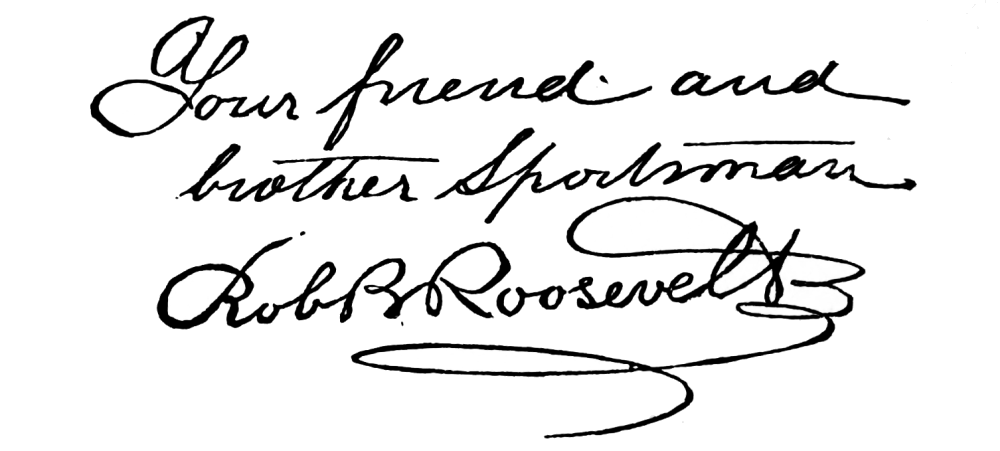 Your friend and
brother Sportsman
Rob B Roosevelt